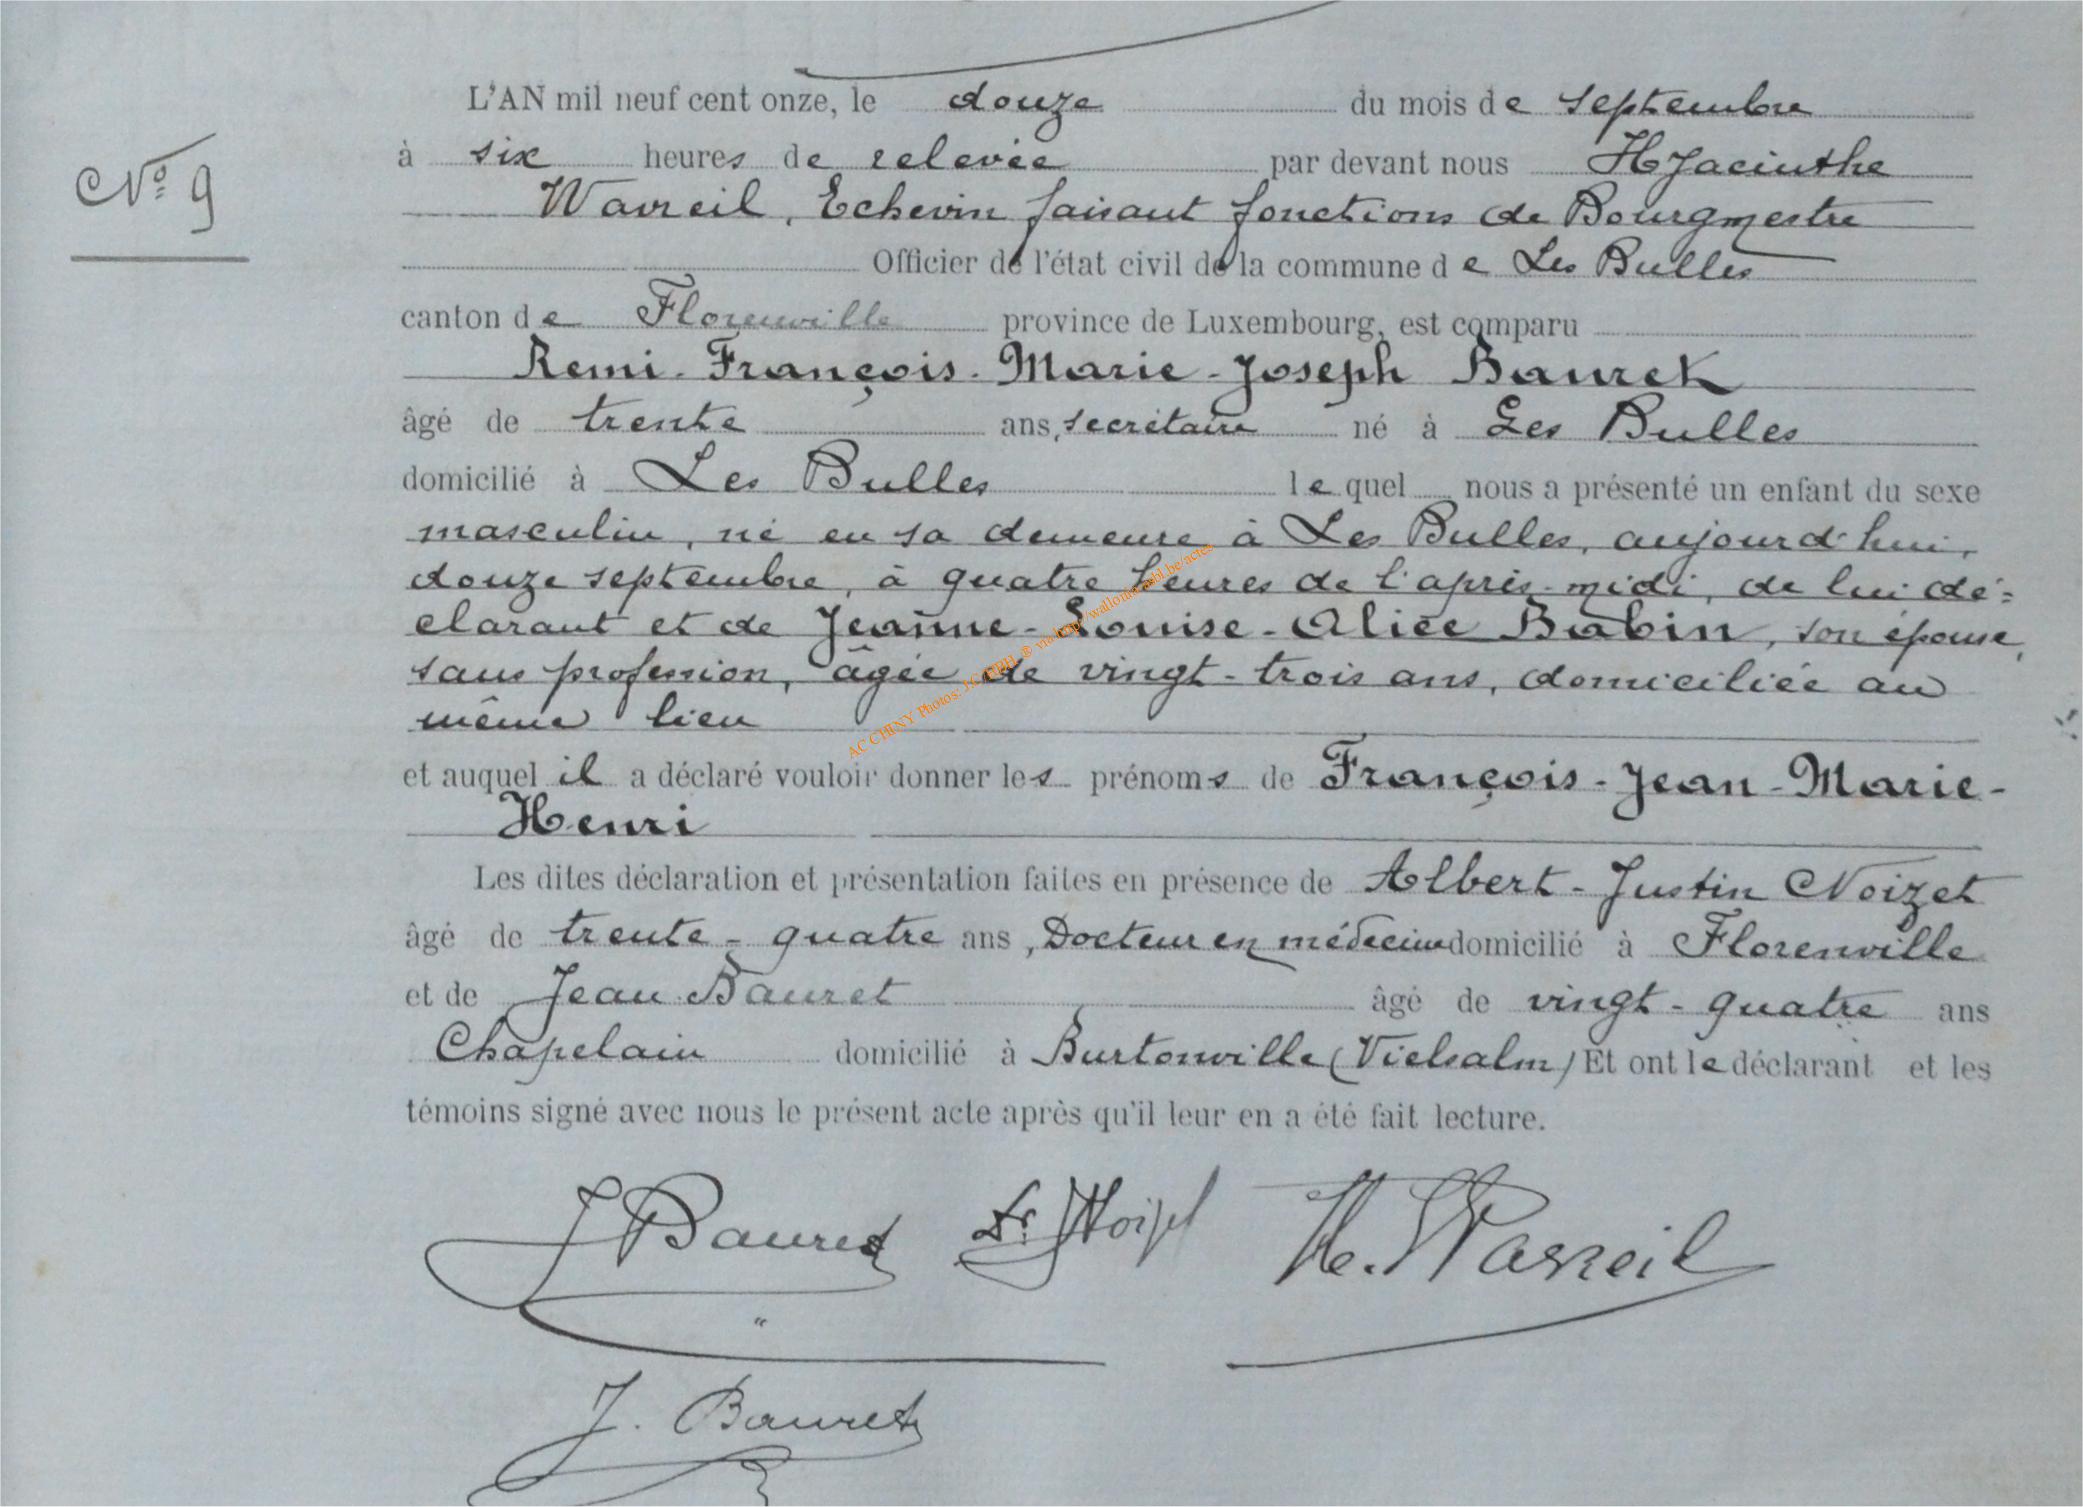 L'AN mil neuf cent onze, le douze du mois de septembre
N° 9
à six heures de relevée par devant nous Hyacinthe
Wavreil, Echevin faisant fonctions de Bourgmestre
Officier de l'état civil de la commune de Les Bulles
canton de Florenville province de Luxembourg, est comparu
Remi-François-Marie-Joseph Bauret
âgé de trente ans, secrétaire né à Les Bulles
domicilié à Les Bulles lequel nous a présenté un enfant du sexe
masculin, né en sa demeure à Les Bulles, aujourd'hui,
douze septembre, à quatre heures de l'après-midi, de lui dé=
clarant et de Jeanne-Louise-Alice Babin, son épouse,
sans profession, âgée de vingt-trois ans, domiciliée au
même lieu
AC CHINY Photos: J.C.
et auquel il a déclaré vouloir donner les prénoms de François-Jean-Marie-
Henri
Les dites déclaration et présentation faites en présence de Albert-Justin Noizet
âgé de trente-quatre ans, Docteur en médecine domicilié à Florenville
et de Jean Bauret âgé de vingt-quatre ans
Chapelain domicilié à Burtonville (Vielsalm) Et ont le déclarant et les
témoins signé avec nous le présent acte après qu'il leur en a été fait lecture.
J Bauret Dr Noizet H. Wavreil
J. Bauret